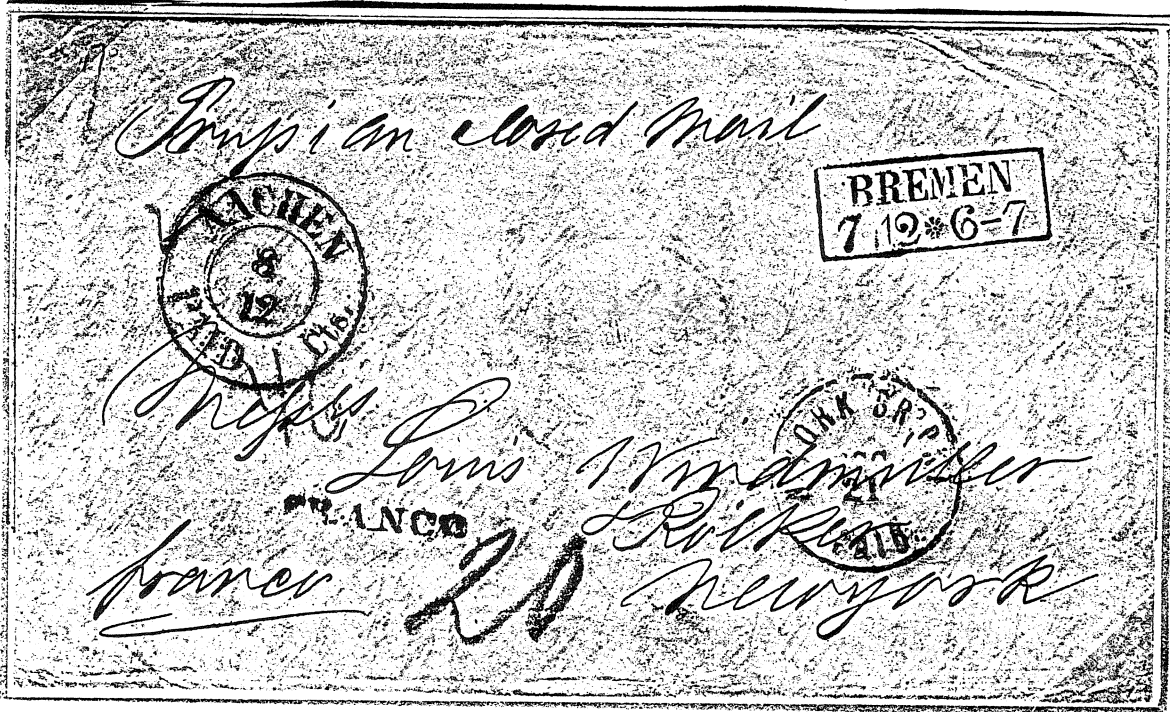 Prussian closed Mail
BREMEN
7 12 * 6-7
AACHEN
8
12
PAID Cts.
Messrs
Louis Windmüller
& Rölker
Newyork
FRANCO
franco
20
21
PAID